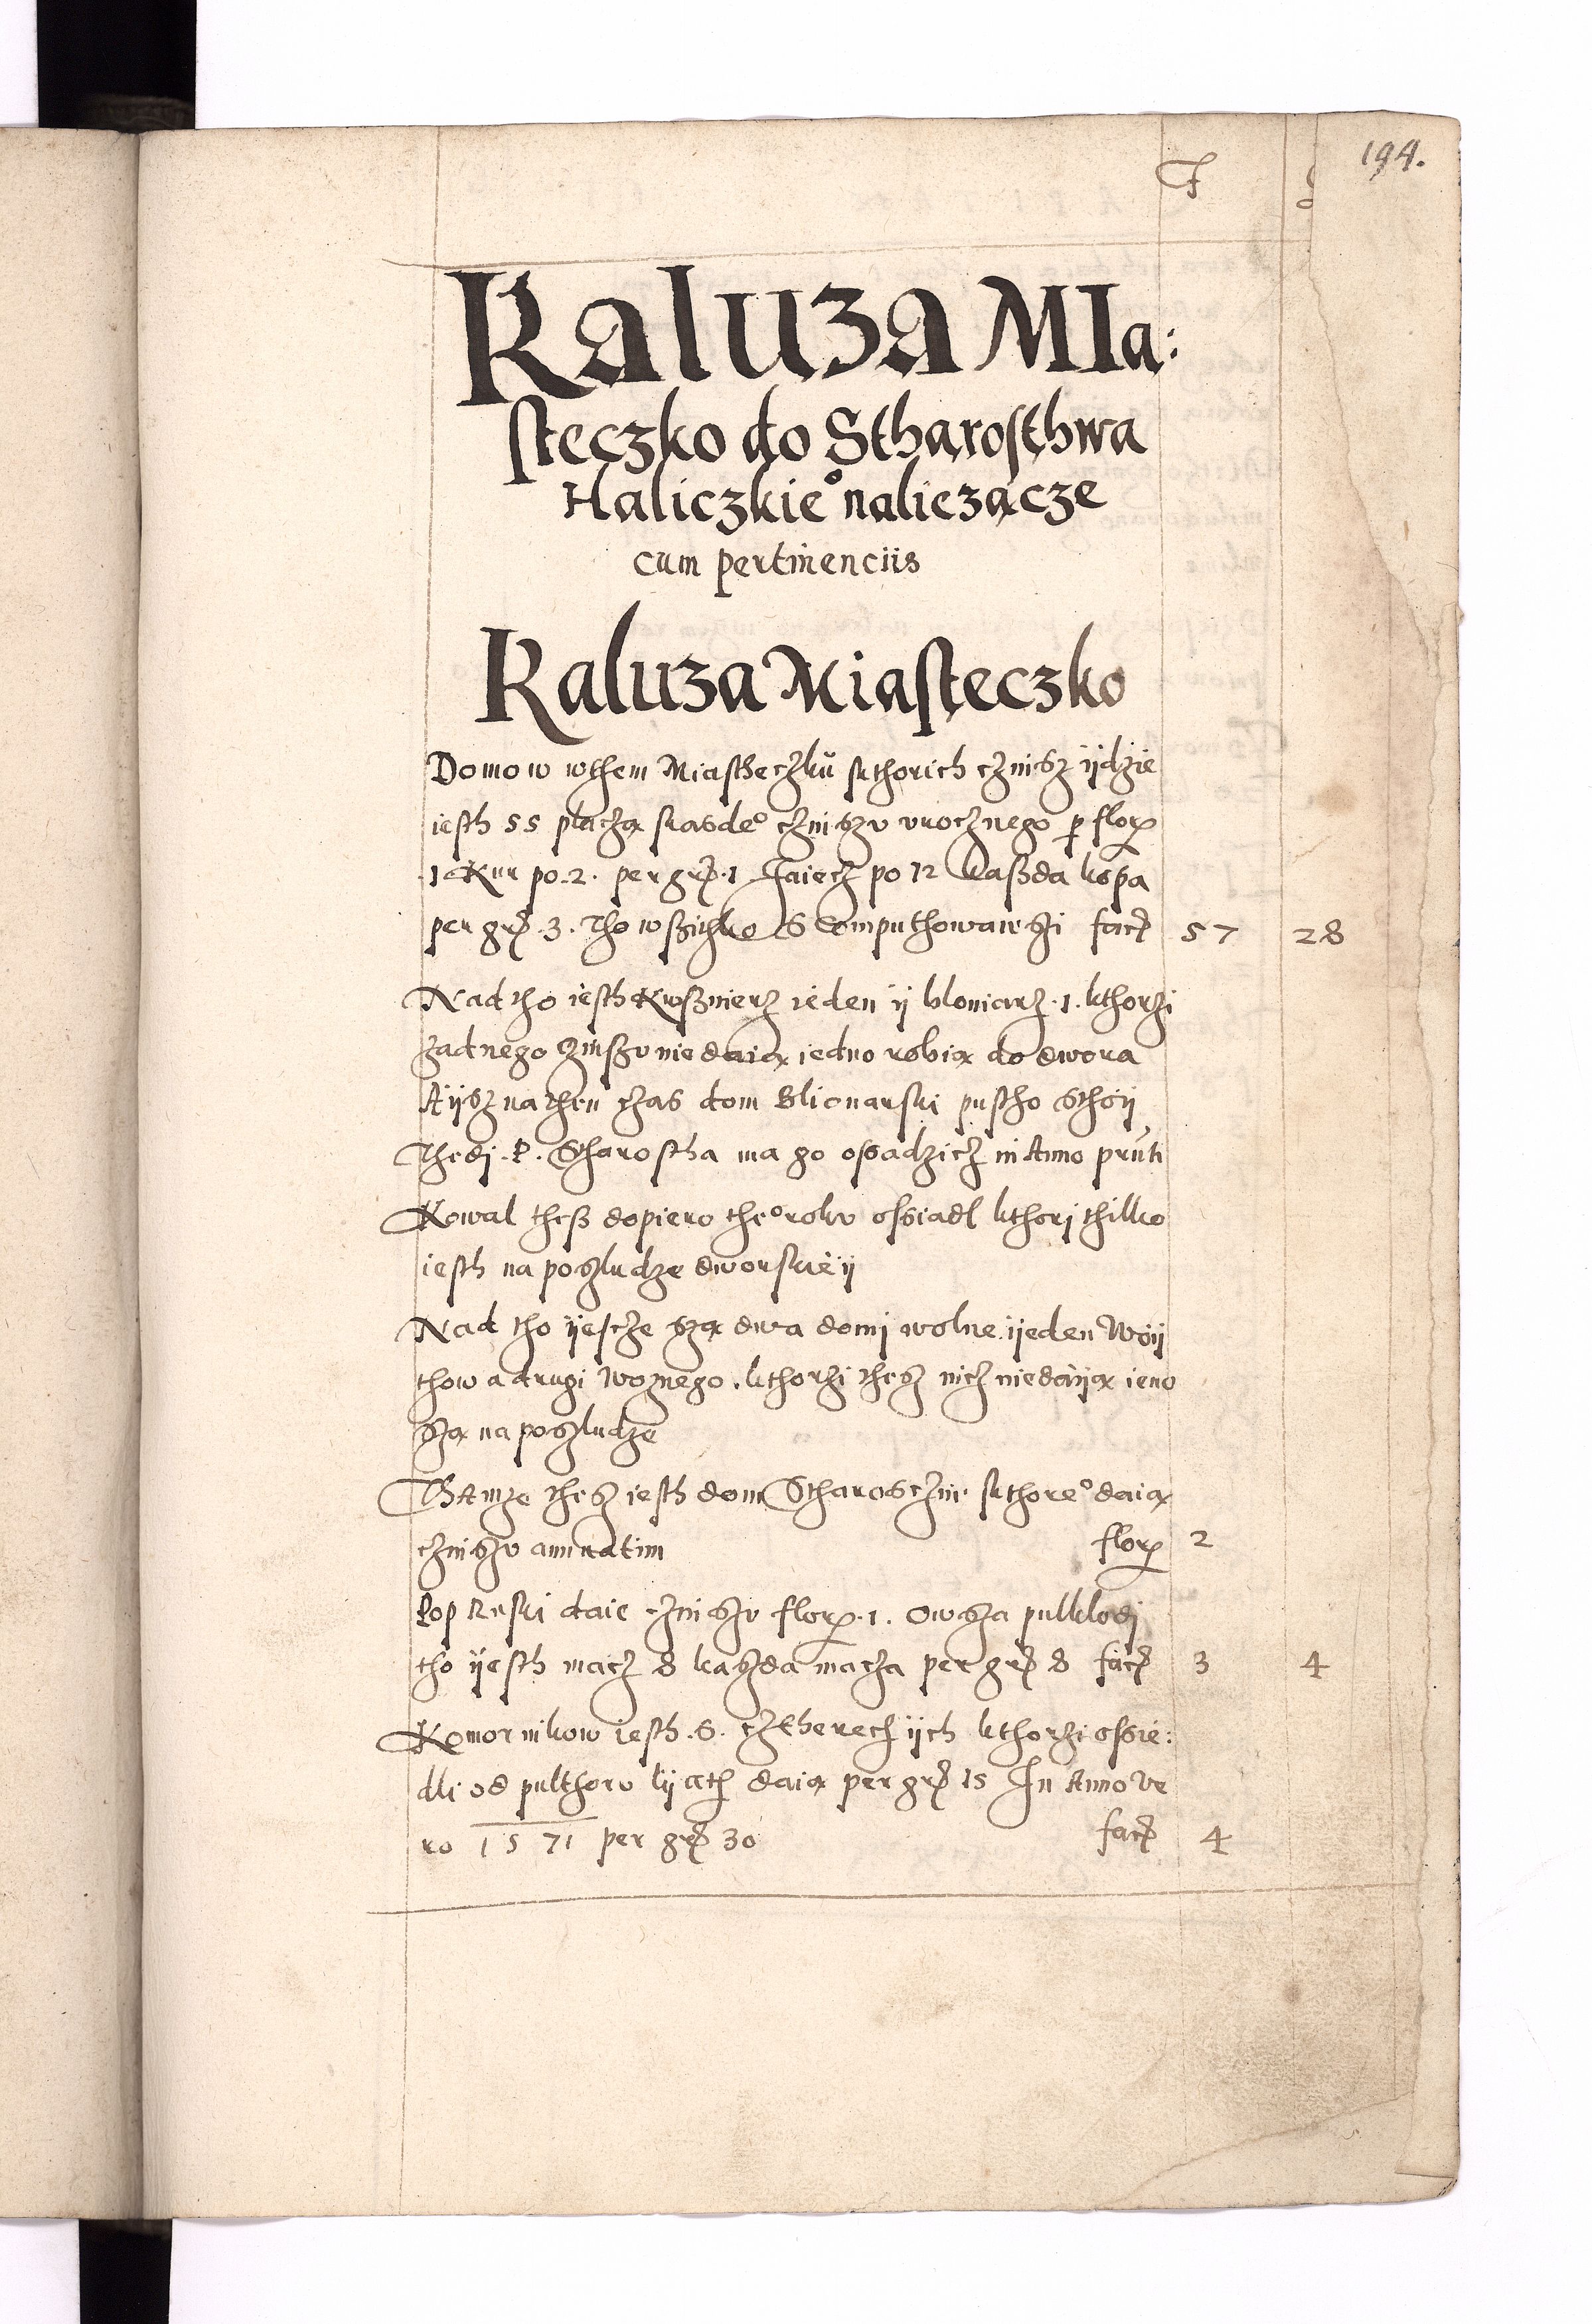 194.
F
Kaluza MIa:
steczko do Stharosthwa
Haliczkie° naliezącze
cum pertinenciis
Kaluza Miasteczko
Domow wthem Miastheczku kthorich czinsz ijdzie
iesth 55 placzą kasde° czinszv vrocznego per flor
1 Kur po 2. per gr. 1 Jaiecz po 12 kaßda kopa
per gr. 3. Tho wßitko Scomputhowawszi facit 57 28
Nad tho iesth Kvßnierz ieden ij bloniarz .1. kthorzi
zadnego Czinßv nie daią iedno robią do dwora
A ijsz na then czas dom Blionarski pustho sthoij
Thedi P. Starostha ma go ossadzicz in Anno pruti
Kowal theß dopiero the° rokv ossiadl kthorj thilko
iesth na poszludze dworskieij
Nad tho ijescze szą dwa domj wolne ijeden Woij
thow a drugi woznego. kthorzi thesz nicz niedaiją ieno
szą na poszludze
Tamze thesz iesth dom Stharosczin skthore° daią
czinszv annuatim flor 2
Pop Ruski daie czinszv flor. 1. Owsza pulklodj
tho ijesth macz 8 kaszda macza per gr 8 facit 3 4
Komornikow iesth .8. cztherech ijch kthorzi ossie:
dli od pulthorv lijath daią per gr 15 In Anno ve
ro 1571 per gr 30 facit 4